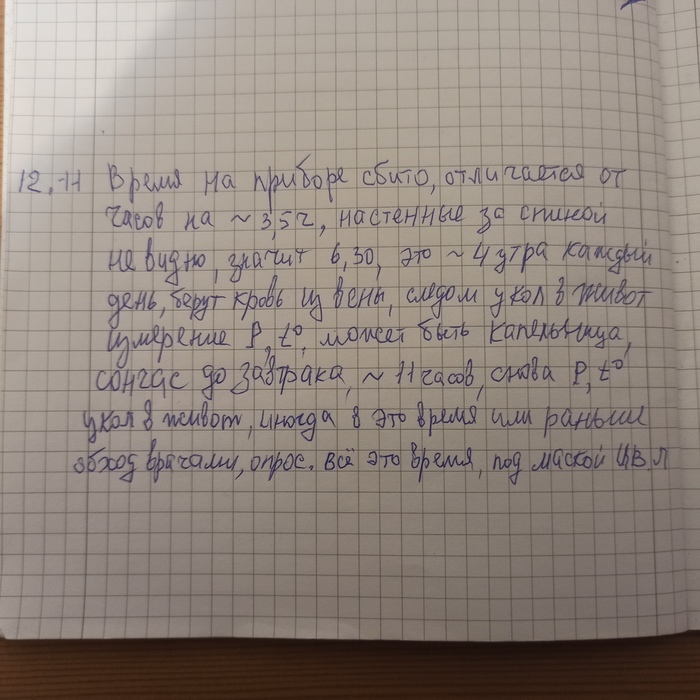 12.11 Время на приборе сбито, отличается от
часов на ~ 3,5ч, настенные за спиной
не видно, значит 6,30, это ~ 4 утра каждый
день, берут кровь из вены, следом укол в живот
измерение P, t°, может быть капельница,
сончас до завтрака, ~ 11 часов, снова P, t°
укол в живот, иногда в это время или раньше
обход врачами, опрос. всё это время, под маской ИВЛ